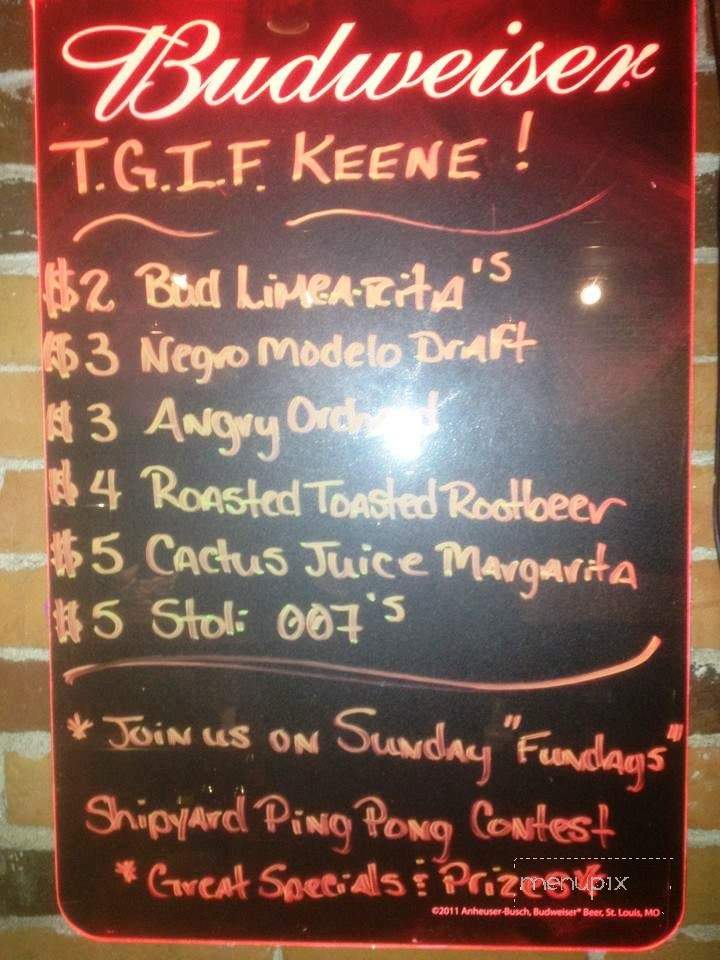 Budweiser
T.G.I.F. KEENE!
$2 Bud Limea-Rita's
$3 Negro Modelo Draft
$3 Angry Orchard
$4 Roasted Toasted Rootbeer
$5 Cactus Juice Margarita
$5 Stoli 007's
* Join us on Sunday "Fundays"
Shipyard Ping Pong Contest
* Great Specials & Prizes *
menupix
©2011 Anheuser-Busch, Budweiser® Beer, St. Louis, MO